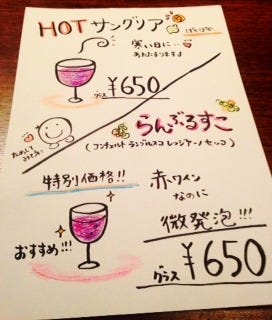 HOT サングリア
ぽかぽか
寒い日に…
あたたまりますよ
グラス ¥650
ためして
みてネ!
らんぶるすこ
(コンチェルト ランブルスコ レッジャーノ セッコ)
特別価格!!
赤ワイン
なのに
微発泡!!!
おすすめ!!!
グラス ¥650